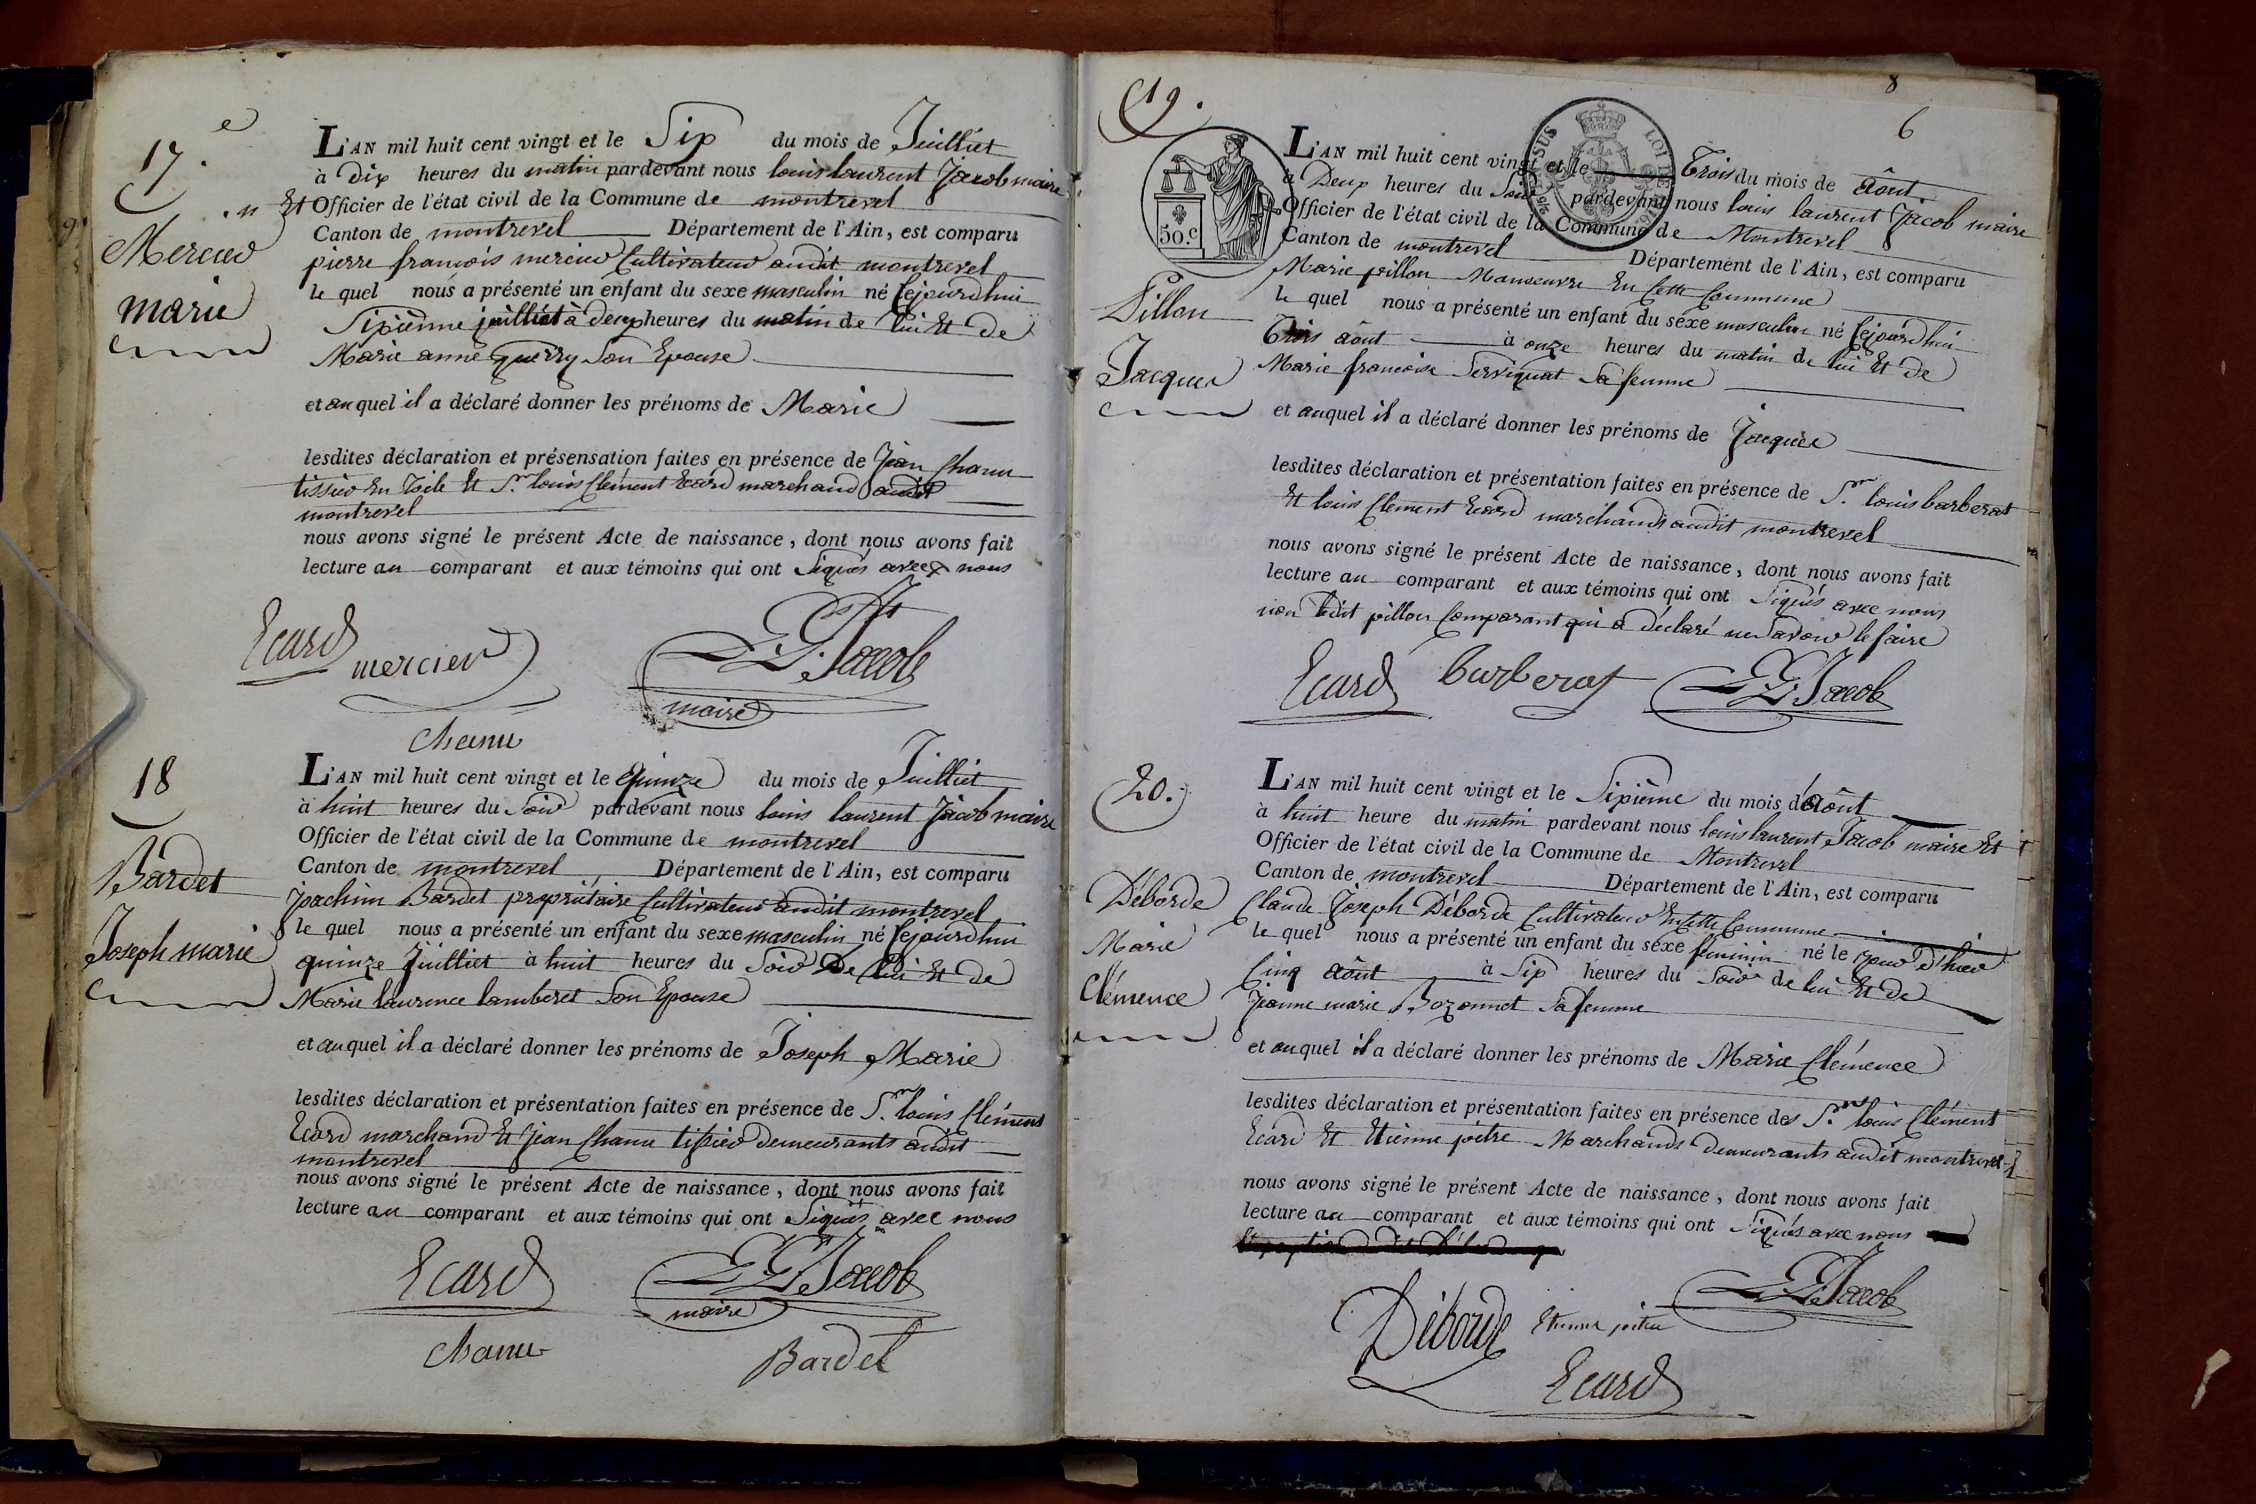 17.
Mercier
marie
L'AN mil huit cent vingt et le Six du mois de Juilliet
à Dix heures du matin pardevant nous louis laurent Jacob maire
Et Officier de l'état civil de la Commune de montrevel
Canton de montrevel Département de l'Ain, est comparu
pierre francois mercier Cultivateur audit montrevel
le quel nous a présenté un enfant du sexe masculin né Cejourdhui
Sixième juilliet à deux heures du matin de lui Et de
Marie anne guerry Son Epouse
et au quel il a déclaré donner les prénoms de Marie
lesdites déclaration et présensation faites en présence de Jean Chanu
tissier En toile Et Sr. louis Clément Ecard marchand audit
montrevel
nous avons signé le présent Acte de naissance, dont nous avons fait
lecture au comparant et aux témoins qui ont Signés avec nous
Ecard mercier L. L. Jacob
maire
chanu
18
Bardet
Joseph marie
L'AN mil huit cent vingt et le Quinze du mois de Juilliet
à huit heures du Soir pardevant nous louis laurent Jacob maire
Officier de l'état civil de la Commune de montrevel
Canton de montrevel Département de l'Ain, est comparu
joachim Bardet propriétaire Cultivateur audit montrevel
le quel nous a présenté un enfant du sexe masculin né Cejourdhui
quinze Juilliet à huit heures du Soir De lui Et de
Marie laurence lamberet Son Epouse
et au quel il a déclaré donner les prénoms de Joseph Marie
lesdites déclaration et présentation faites en présence de Sr. louis Clément
Ecard marchand Et Jean Chanu tissier demeurants audit
montrevel
nous avons signé le présent Acte de naissance, dont nous avons fait
lecture au comparant et aux témoins qui ont Signés avec nous
Ecard L. L. Jacob
maire
chanu Bardet
8
6
19.
50.c
Pillon
Jacques
L'AN mil huit cent vingt et le Trois du mois de août
à Deux heures du Soir pardevant nous louis laurent Jacob maire
Officier de l'état civil de la Commune de Montrevel
Canton de montrevel Département de l'Ain, est comparu
Marie pillon Manoeuvre En Cette Commune
le quel nous a présenté un enfant du sexe masculin né Cejourdhui
Trois août à onze heures du matin de lui Et de
Marie francoise Serviquat Sa femme
et auquel il a déclaré donner les prénoms de Jacques
lesdites déclaration et présentation faites en présence de Sr. louis barberat
Et louis Clement Ecard marchands audit montrevel
nous avons signé le présent Acte de naissance, dont nous avons fait
lecture au comparant et aux témoins qui ont Signés avec nous
non ledit pillon Comparant qui a déclaré ne Savoir le faire
Ecard barberat L. L. Jacob
20.
Déborde
Marie
Clémence
L'AN mil huit cent vingt et le Sixième du mois d'août
à huit heure du matin pardevant nous louis laurent Jacob maire Et
Officier de l'état civil de la Commune de Montrevel
Canton de montrevel Département de l'Ain, est comparu
Claude Joseph Déborde Cultivateur En Cette Commune
le quel nous a présenté un enfant du sexe féminin né le jour d'hier
Cinq août à Six heures du Soir de lui Et de
Jeanne marie Bozonnet Sa femme
et auquel il a déclaré donner les prénoms de Marie Clémence
lesdites déclaration et présentation faites en présence des Sr. louis Clément
Ecard Et Etienne pitre Marchands demeurants audit montrevel
nous avons signé le présent Acte de naissance, dont nous avons fait
lecture au comparant et aux témoins qui ont Signés avec nous
Déborde Etienne L. L. Jacob
Ecard